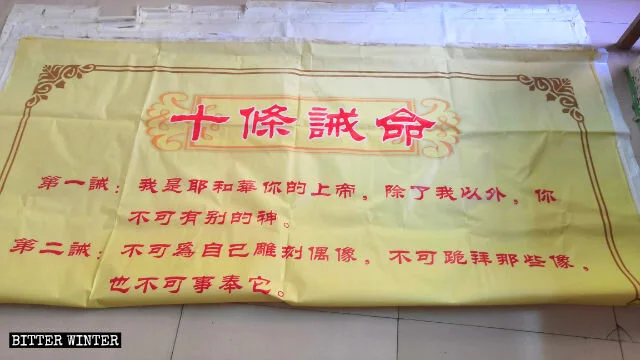 十條誡命
第一誡：我是耶和華你的上帝。除了我以外，你
不可有别的神。
第二誡：不可爲自己雕刻偶像。不可跪拜那些像。
也不可事奉它。
BITTER WINTER